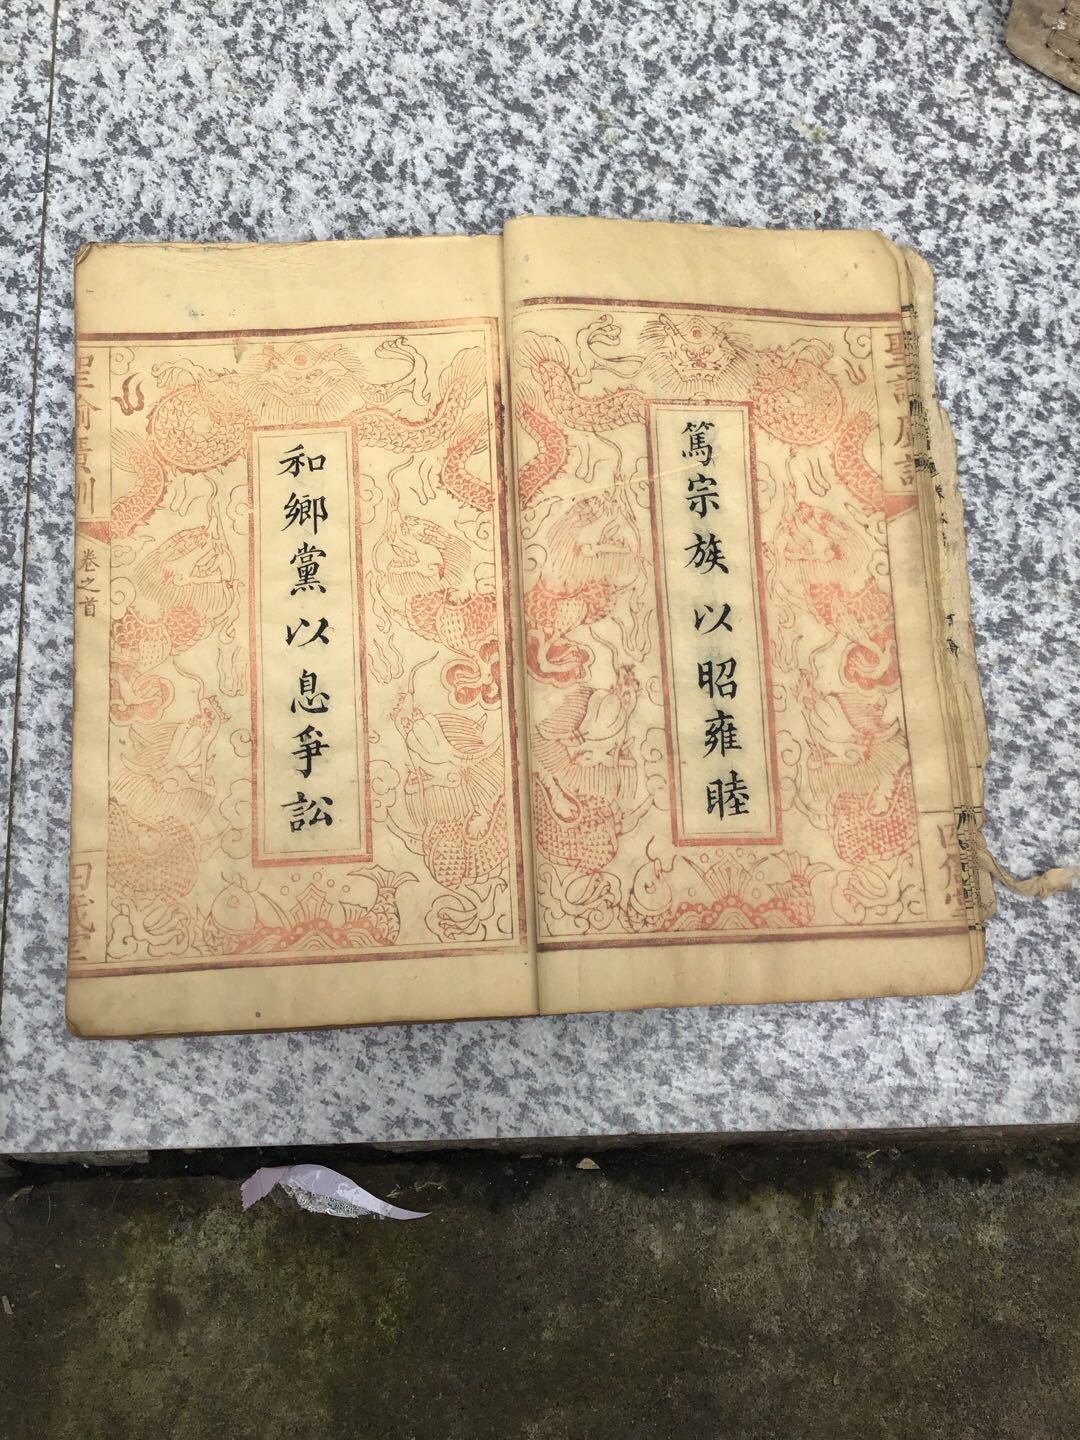 聖諭廣訓
篤宗族以昭雍睦
和鄉黨以息爭訟
聖諭廣訓
卷之首
四箴堂